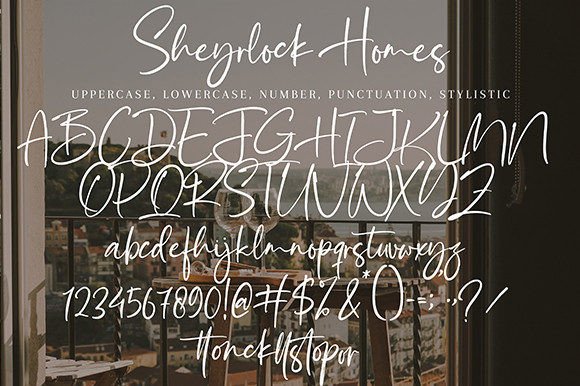 Sheyrlock Homes
UPPERCASE, LOWERCASE, NUMBER, PUNCTUATION, STYLISTIC
ABCDEFGHIJKLMN
OPQRSTUVWXYZ
abcdefhijklmnopqrstuvwxyz
1234567890!@#$%&*()-=;.,?/